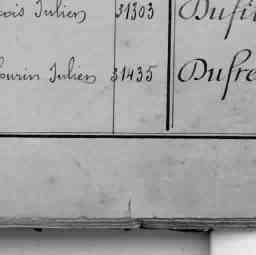 ois Julien 31303 Dufi
urin Julien 31435 Dufre